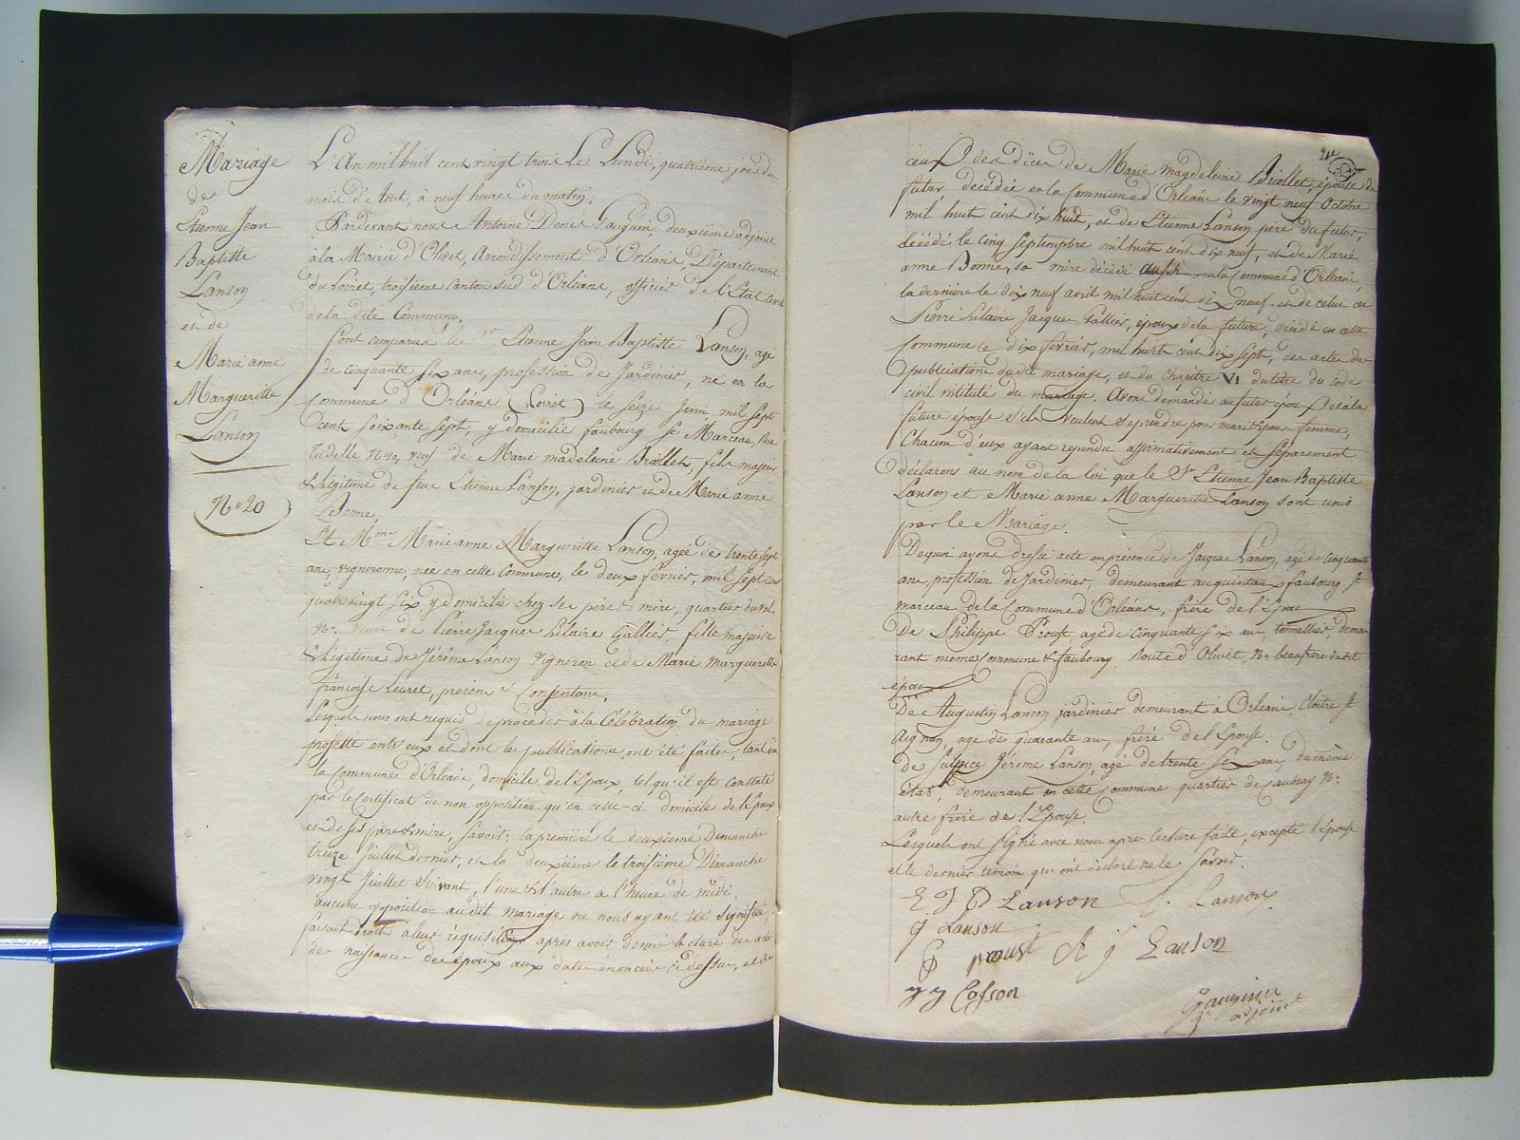 Mariage
de
Etienne Jean
Baptiste
Lanson
et de
Marie anne
Margueritte
Lanson
N.o 20
L'An mil huit cent vingt trois Le Lundi, quatrième jour du
mois d'Aout, à neuf heures du matin,
Pardevant nous Antoine Denis Gauguin, deuxieme adjoint
à la Mairie d'Olivet, Arrondissement d'Orléans, Département
du Loiret, troisieme Canton sud d'Orléans, officier de l'Etat Civil
de la dite Commune,
Sont comparus le Sr Etienne Jean Baptiste Lanson, agé
de cinquante six ans, profession de Jardinier, né en la
Commune d'Orléans (Loiret) le seize Juin mil sept
Cent soixante sept, y domicilié faubourg St Marceau, Rue
Tudelle veuf de Marie madeleine Briollet, fils majeur
& légitime de feue Etienne Lanson, jardinier et de Marie anne
Bonne
Et Marie anne Margueritte Lanson, agée de trente sept
ans, vigneronne, née en cette Commune, le deux fevrier, mil sept cent
quatrevingt six, y domiciliée chez ses père & mère, quartier du
de Pierre Jacques hilaire Gallier fille majeure
& légitime de Jérôme Lanson vigneron et de Marie Margueritte
françoise Leuret, présens & Consentans,
Lesquels nous ont requis de procéder à la Célébration du mariage
projetté entr'eux et dont les publications ont été faites, tant en
la Commune d'Orléans, domicile de l'Epoux, tel qu'il est constaté
par le Certificat de non opposition, qu'en celle-ci domicile de l'Epouse
et de ses père & mère, Savoir: la première le deuxieme Dimanche
treize Juillet dernier, et la deuxième le troisième Dimanche
vingt Juillet suivant, l'une & l'autre à l'heure de midi
aucune opposition audit mariage ne nous ayant été signifiée
faisant droit à leur réquisition après avoir donné lecture des actes
de naissance des époux aux dates énoncées ci dessus, et de
ceux des décès de Marie magdeleine Briollet, épouse du
futur décédée en la Commune d'Orléans le vingt neuf Octobre
mil huit cent dix huit, et de Etienne Lanson père du futur,
décédé le cinq Septembre mil huit cent dix neuf, et de Marie
anne Bonne, sa mère décédée aussi en la Commune d'Orléans
la dernière le dix neuf avril mil huit cent dix neuf et de celui de
Pierre hilaire Jacques Gallier, époux de la future, décédé en cette
Commune le dix fevrier, mil huit cent dix sept, des actes de
publications dudit mariage, et du chapitre VI du titre du code
civil intitulé du mariage. Avons demandé au futur époux et à la
future épouse s'ils veulent se prendre pour mari & pour femme,
Chacun d'eux ayant repondu affirmativement et separement
déclarons au nom de la loi que le Sr Etienne Jean Baptiste
Lanson et Marie anne Margueritte Lanson sont unis
par le Mariage.
De quoi avons dressé acte en présence de Jacques Lanson, agé de cinquante
ans, profession de Jardinier, demeurant au faubourg St
marceau de la Commune d'Orléans, frère de l'Epoux
De Philippe Proust, agé de cinquante six ans, tonnellier demeu
rant meme Commune & faubourg Route d'Olivet, beaufrere dudit
époux
De Augustin Lanson jardinier demeurant à Orléans, Cloitre St
Aignan, agé de quarante ans, frère de l'Epouse.
de Sulpice Jerome Lanson, agé de trente six ans, du même
état, demeurant en cette Commune quartier de
autre frère de l'Epouse.
Lesquels ont signé avec nous apres lecture faite, excepté l'épouse
et le dernier témoin qui ont déclaré ne le Savoir.
E J B Lanson Lanson
J Lanson
P proust A J Lanson
Cosson
Gauguin
adjoint